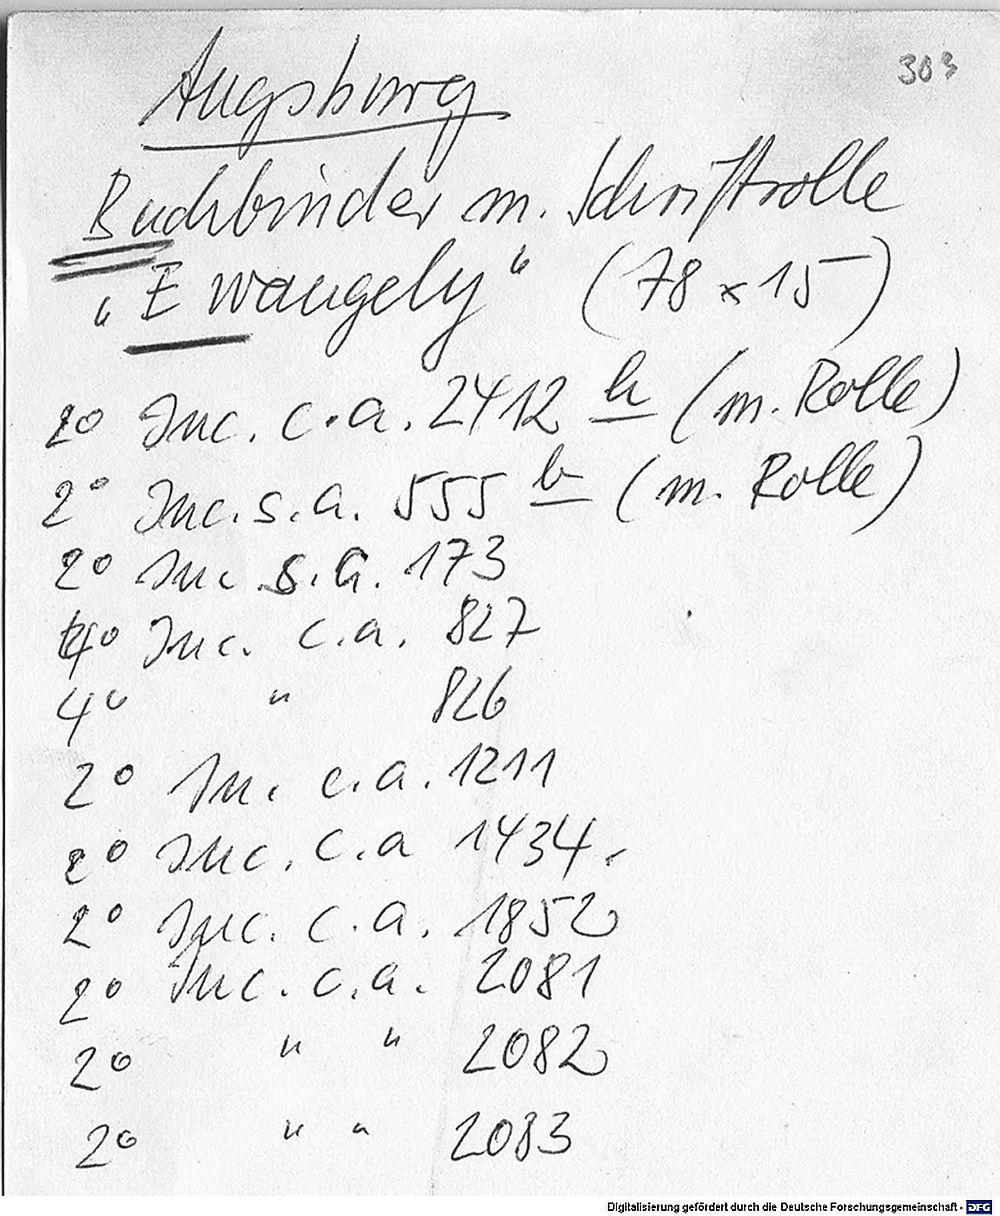 303
Augsburg
Buchbinder m. Schriftrolle
„Ewangely“ (78 x 15)
2° Inc. c. a. 2412 h (m. Rolle)
2° Inc. s. a. 555 b (m. Rolle)
2° Inc s. a. 173
4° Inc. c. a. 827
4° " 826
2° In. c. a. 1211
2° Inc. c. a 1434.
2° Inc. c. a. 1852
2° Inc. c. a. 2081
2° " " 2082
2° " " 2083
Digitalisierung gefördert durch die Deutsche Forschungsgemeinschaft - DFG